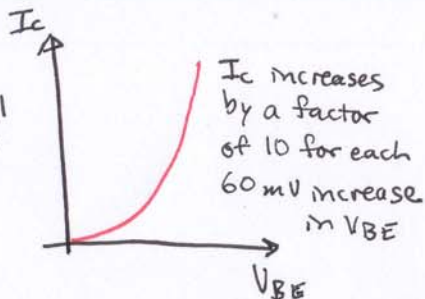 Ic
Ic increases
by a factor
of 10 for each
60 mV increase
in VBE
VBE